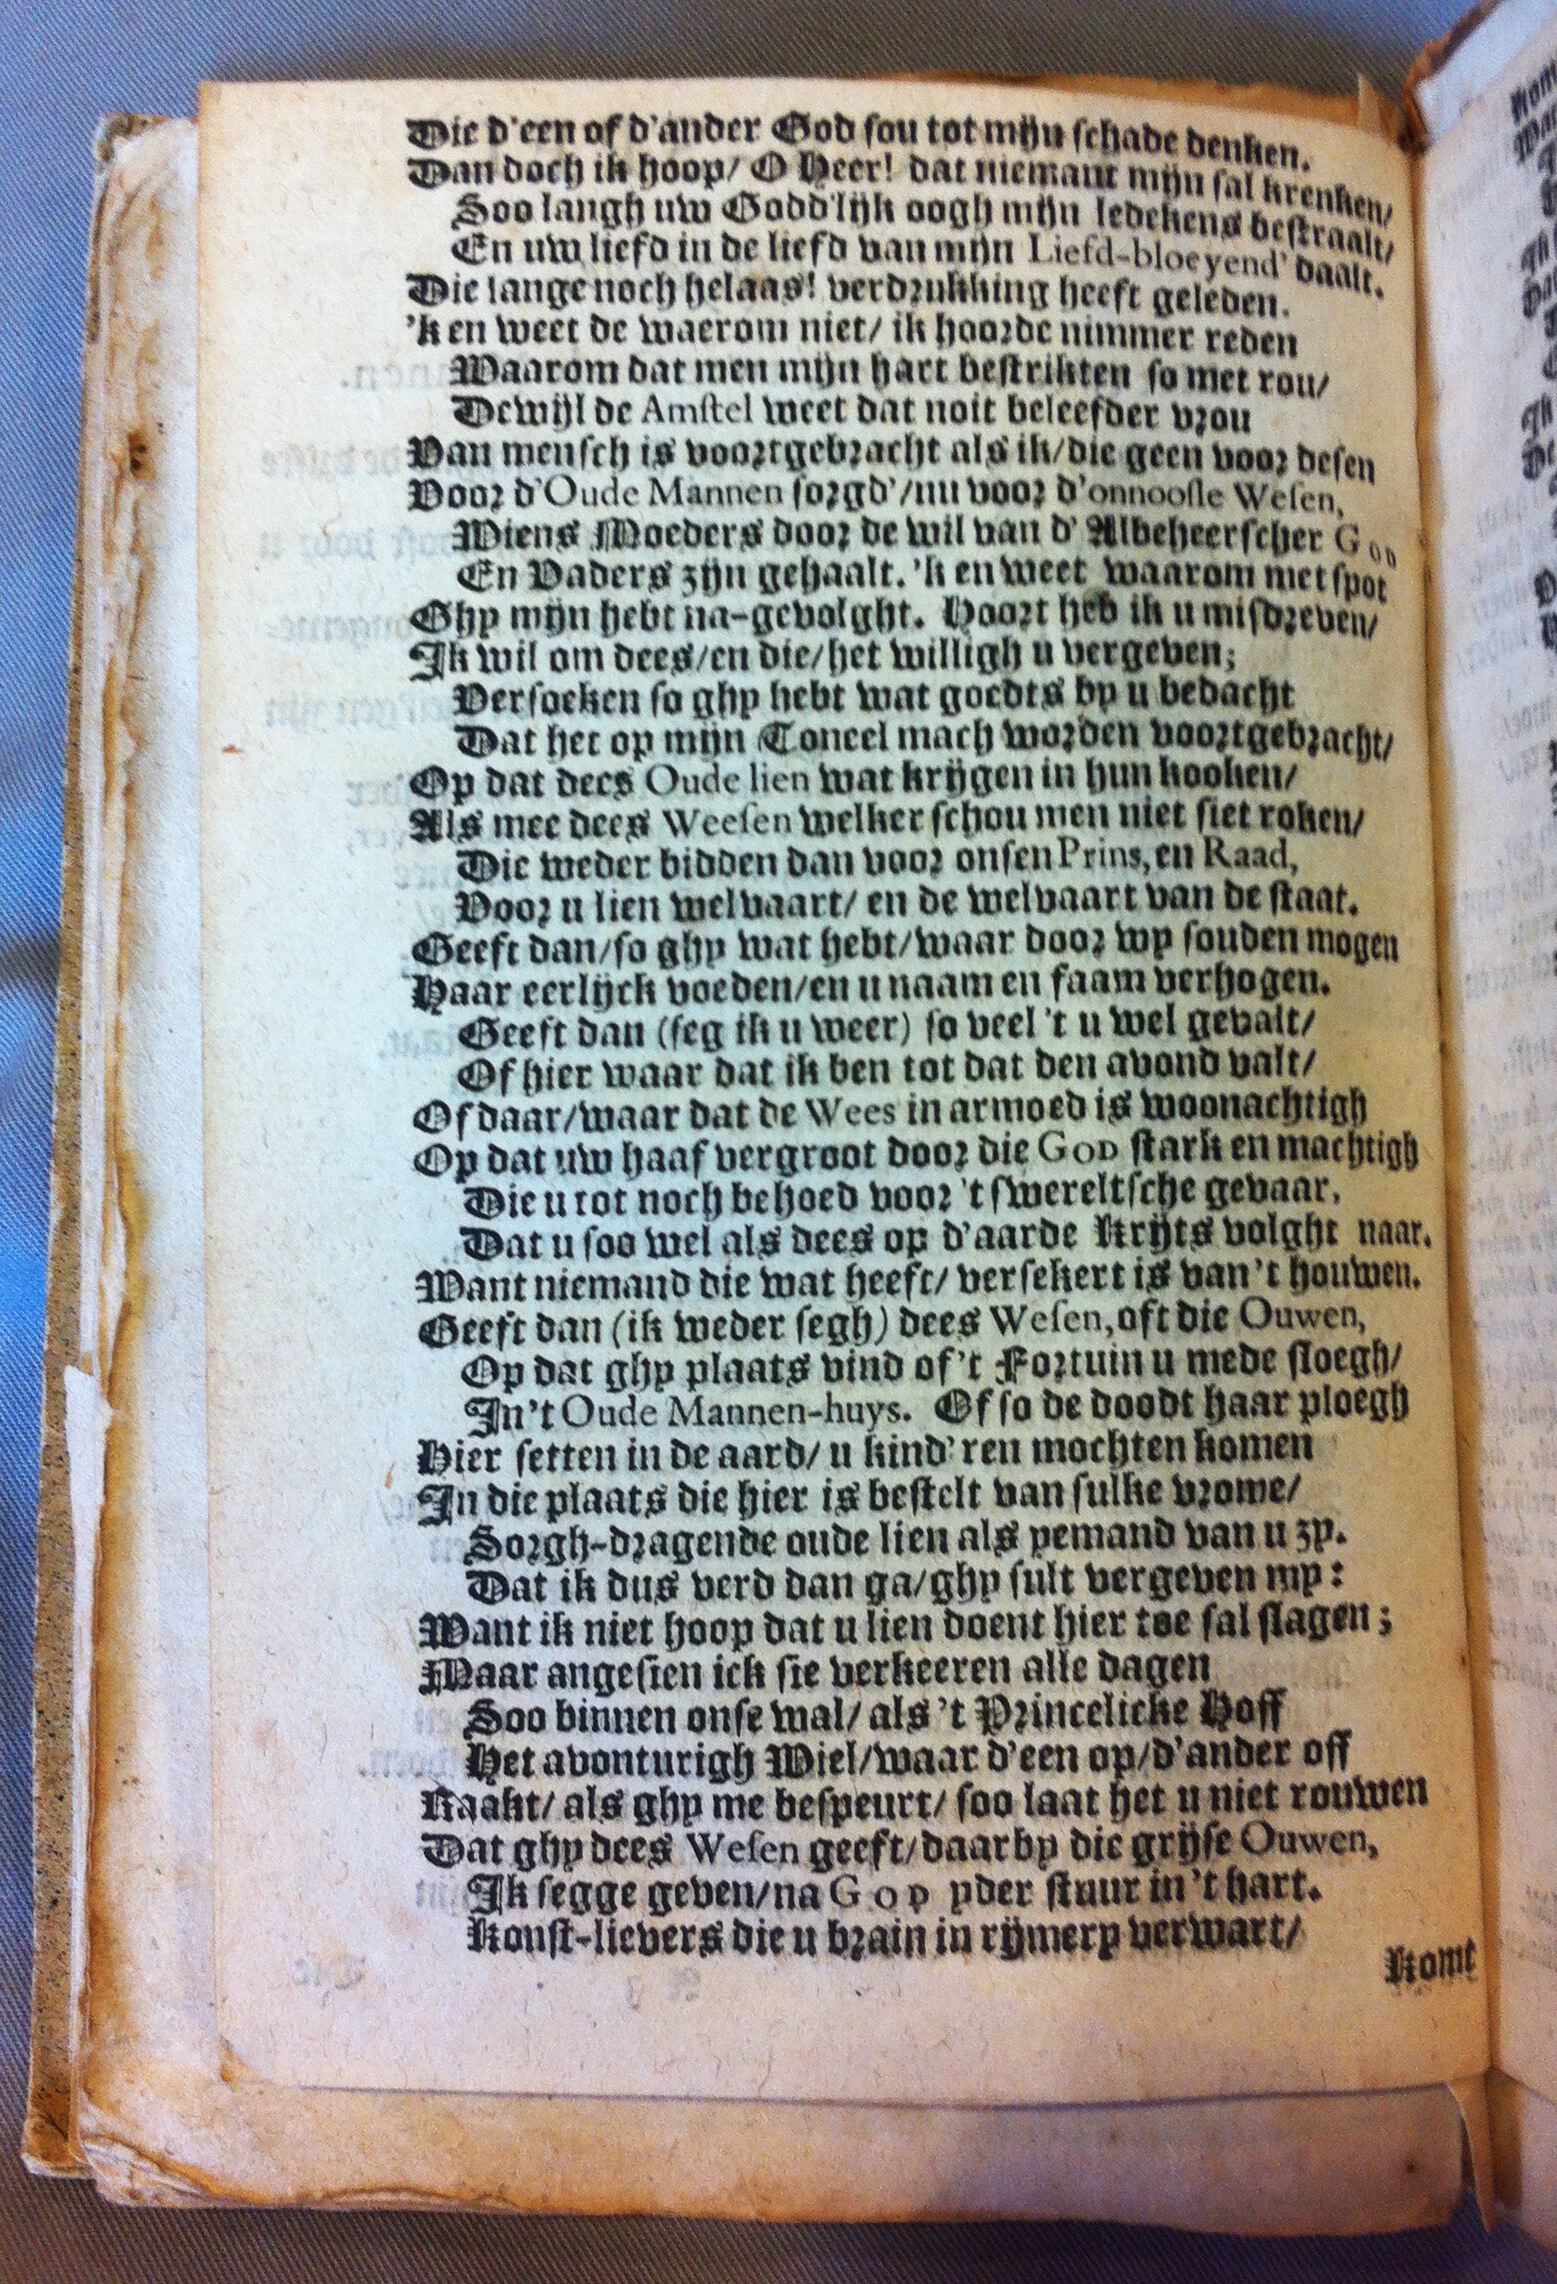 Die d'een of d'ander God sou tot mijn schade denken.
Dan doch ik hoop/ O Heer! dat niemant mijn sal krenken/
Soo langh uw Godd'lijk oogh mijn ledekens bestraalt/
En uw liefd in de liefd van mijn Liefd-bloeyend' daalt.
Die lange noch helaas! verdrukking heeft geleden.
'k en weet de waerom niet/ ik hoorde nimmer reden
Waarom dat men mijn hart bestrikten so met rou/
Dewijl de Amstel weet dat noit beleefder vrou
Van mensch is voortgebracht als ik/die geen voor desen
Voor d'Oude Mannen sorgd'/nu voor d'onnoosle Wesen,
Wiens Moeders door de wil van d' Albeheerscher God
En Vaders zijn gehaalt. 'k en weet waarom met spot
Ghy mijn hebt na-gevolght. Hoort heb ik u misdreven/
Ik wil om dees/en die/het willigh u vergeven;
Versoeken so ghy hebt wat goedts by u bedacht
Dat het op mijn Toneel mach worden voortgebracht/
Op dat dees Oude lien wat krijgen in hun kooken/
Als mee dees Weesen welker schou men niet siet roken/
Die weder bidden dan voor onsen Prins, en Raad,
Voor u lien welvaart/ en de welvaart van de staat.
Geeft dan/so ghy wat hebt/waar door wy souden mogen
Haar eerlijck voeden/en u naam en faam verhogen.
Geeft dan (seg ik u weer) so veel 't u wel gevalt/
Of hier waar dat ik ben tot dat den avond valt/
Of daar/waar dat de Wees in armoed is woonachtigh
Op dat uw haaf vergroot door die GOD stark en machtigh
Die u tot noch behoed voor 't swereltsche gevaar.
Dat u soo wel als dees op d'aarde Krijts volght naar.
Want niemand die wat heeft/ versekert is van 't houwen.
Geeft dan (ik weder segh) dees Wesen, oft die Ouwen,
Op dat ghy plaats vind of 't Fortuin u mede sloegh/
In 't Oude Mannen-huys. Of so de doodt haar ploegh
Hier setten in de aard/ u kind'ren mochten komen
In die plaats die hier is bestelt van sulke vrome/
Sorgh-dragende oude lien als yemand van u zy.
Dat ik dus verd dan ga/ghy sult vergeven my:
Want ik niet hoop dat u lien doent hier toe sal slagen;
Maar angesien ick sie verkeeren alle dagen
Soo binnen onse wal/ als 't Princelicke Hoff
Het avonturigh Wiel/waar d'een op/d'ander off
Raakt/ als ghy me bespeurt/ soo laat het u niet rouwen
Dat ghy dees Wesen geeft/daar by die grijse Ouwen,
Ik segge geven/na GOD yder stuur in 't hart.
Konst-lievers die u brain in rijmery verwart/
Komt